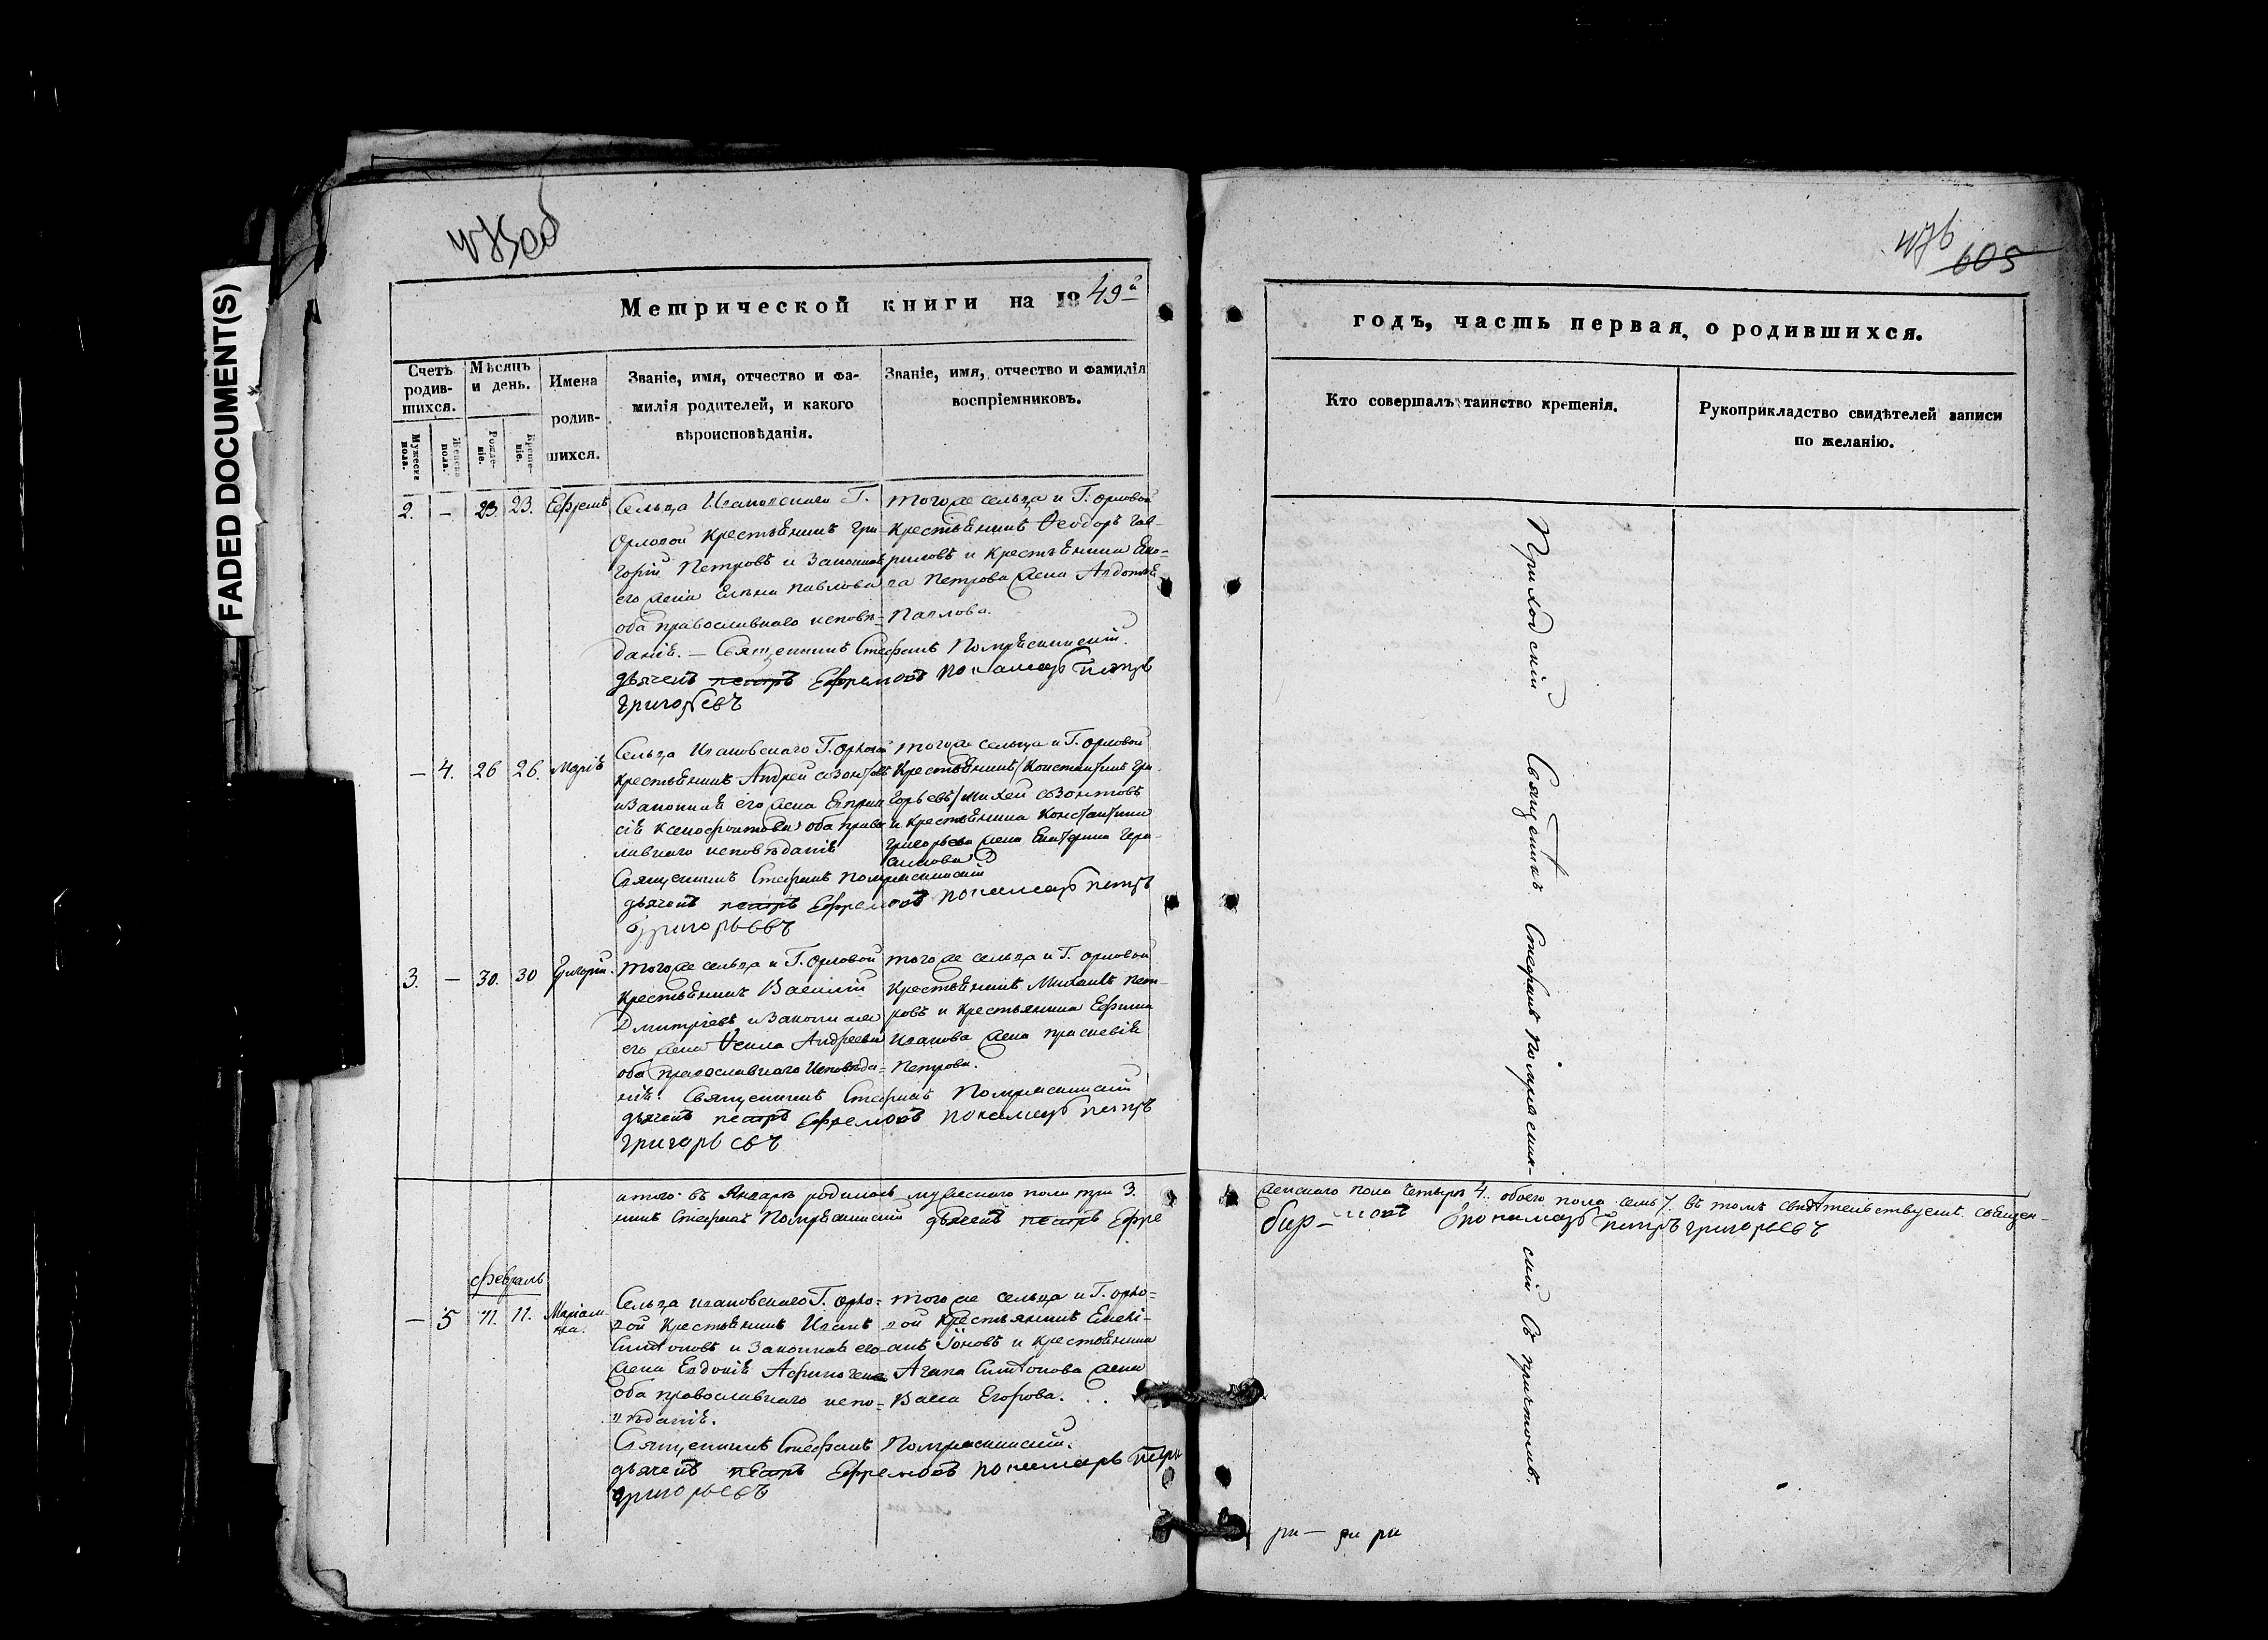 FADED DOCUMENT(S)
475об
476
605
Метрической книги на 1849й
годъ, часть первая, о родившихся.
Счетъ родившихся.
Мужеска пола.
Женска пола.
Мѣсяцъ и день.
Рожденіе.
Крещеніе.
Имена
родив-
шихся.
Званіе, имя, отчество и фа-
милія родителей, и какого
вѣроисповѣданія.
Званіе, имя, отчество и фамилія
воспріемниковъ.
Кто совершалъ таинство крещенія.
Рукоприкладство свидѣтелей записи
по желанію.
2. — 23. 23. Ефремъ
Сельца Ивановскаго Г.
Орловой крестьянинъ Гри-
горій Петровъ и законная
его жена Елена Павлова
оба православнаго исповѣ-
данія. — Священникъ Стефанъ
дьячекъ петръ Ефремовъ пономарь петръ
григорьевъ
того же сельца и Г. Орловой
крестьянинъ Ѳеодоръ Гав-
риловъ и крестьянина
Петрова жена Авдотья
Павлова.
— 4. 26 26. Марія
Сельца Ивановскаго Г. Орловой
крестьянинъ Андрей Созонтовъ
и законная его жена
Ксенофонтова оба право
славнаго исповѣданія
Священникъ Стефанъ
дьячекъ петръ Ефремовъ пономарь петръ
григорьевъ
того же сельца и Г. Орловой
крестьянинъ Константинъ Гри-
горьевъ Михей Созонтовъ
и крестьянина Константина
Григорьева жена Екатерина Гера-
симова
3. — 30. 30 Григорій.
того же сельца и Г. Орловой
крестьянинъ Василій
Дмитріевъ и законная
его жена Ѳекла Андреева
оба православнаго исповѣда-
нія. Священникъ Стефанъ
дьячекъ петръ Ефремовъ пономарь петръ
григорьевъ
того же сельца и Г. Орловой
крестьянинъ Михаилъ Пет-
ровъ и крестьянина Ефима
Иванова жена Прасковія
Петрова.
итого въ Январѣ родилось мужескаго пола три 3.
женскаго пола четыре 4. обоего пола семь 7. въ томъ свидѣтельствуетъ священ-
никъ Стефанъ дьячекъ петръ Ефре
мовъ пономарь петръ григорьевъ
февраль
— 5 11. 11. Маріам-
на.
Сельца Ивановскаго Г. Орло-
вой крестьянинъ Иванъ
и законная его
жена Евдокія
оба православнаго испо-
вѣданія.
Священникъ Стефанъ
дьячекъ петръ Ефремовъ пономарь петръ
григорьевъ
того же сельца и Г. Орло-
вой крестьянинъ
Іоновъ и крестьянина
жена
Васса Егорова.
Приходскій Священникъ Стефанъ
съ причтомъ.